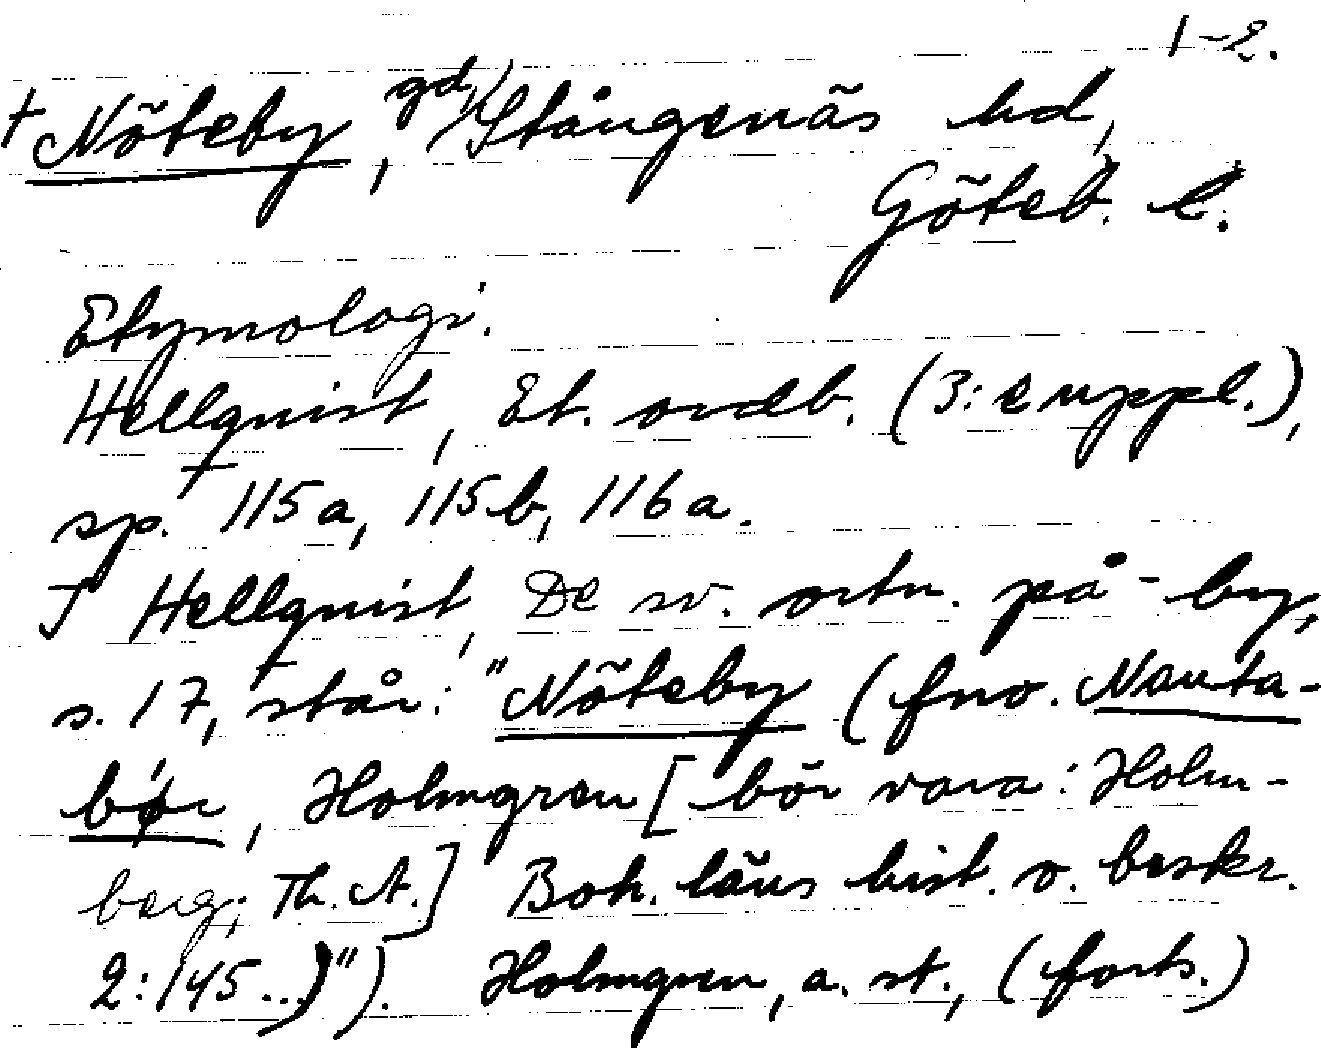 1-2.
† Nöteby, gd, Stångenäs hd,
Göteb. l.
Etymologi.
Hellquist, Et. ordb. (3:e uppl.),
sp. 115a, 115b, 116a.
I Hellquist, De sv. ortn. på -by,
s. 17, står: "Nöteby (fno. Nauta-
bør, Holmgren [bör vara: Holm-
berg; Th. A.] Boh. läns hist. o. beskr.
2:145...)"). Holmgren, a. st., (forts.)